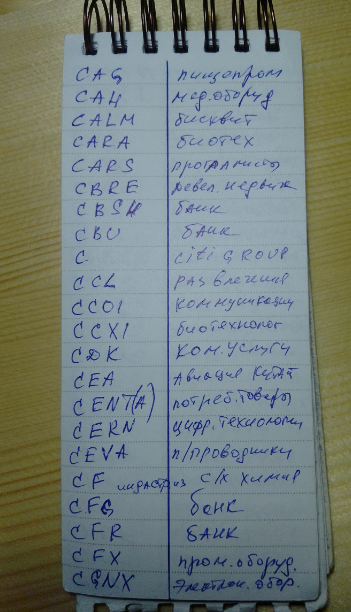 CAG пищепром
CAH мед.оборуд
CALM бисквит
CARA биотех
CARS програмисты
CBRE девел. недвиж
CBSH банк
CBU банк
C Citi GROUP
CCL развлечения
CCOI коммуникации
CCXI биотехнолог
CDK ком. услуги
CEA Авиация Китай
CENT(A) потреб. товары
CERN цифр. технологии
CEVA п/проводники
CF индастриз с/х химия
CFG банк
CFR банк
CFX пром. оборуд.
CGNX Электрон. обор.